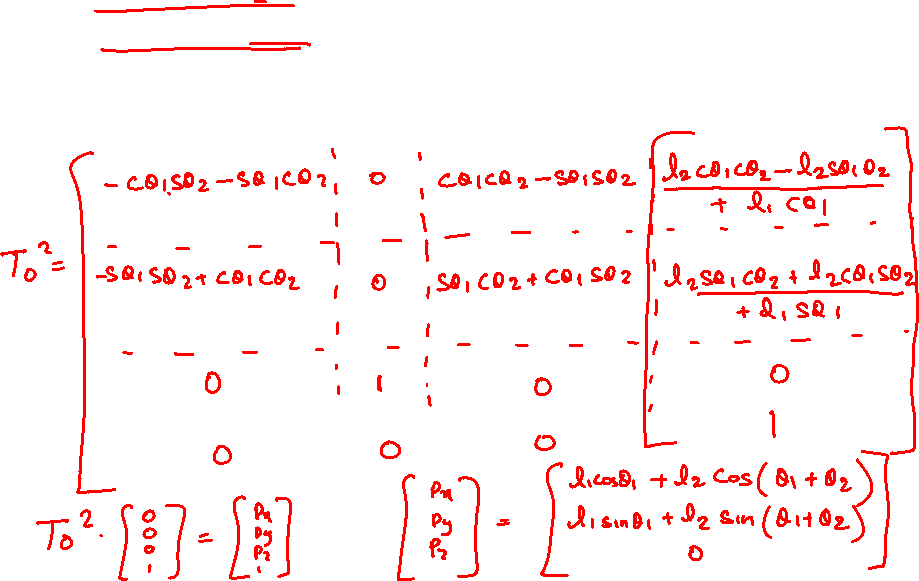 T₀² = [ -cθ₁sθ₂ - sθ₁cθ₂ 0 cθ₁cθ₂ - sθ₁sθ₂ l₂cθ₁cθ₂ - l₂sθ₁θ₂ + l₁cθ₁
-sθ₁sθ₂ + cθ₁cθ₂ 0 sθ₁cθ₂ + cθ₁sθ₂ l₂sθ₁cθ₂ + l₂cθ₁sθ₂ + l₁sθ₁
0 1 0 0
0 0 0 1 ]
T₀² · [ 0 0 0 1 ] = [ Px Py Pz 1 ]
[ Px Py Pz ] = [ l₁cosθ₁ + l₂ cos(θ₁ + θ₂)
l₁sinθ₁ + l₂ sin(θ₁+θ₂)
0 ]